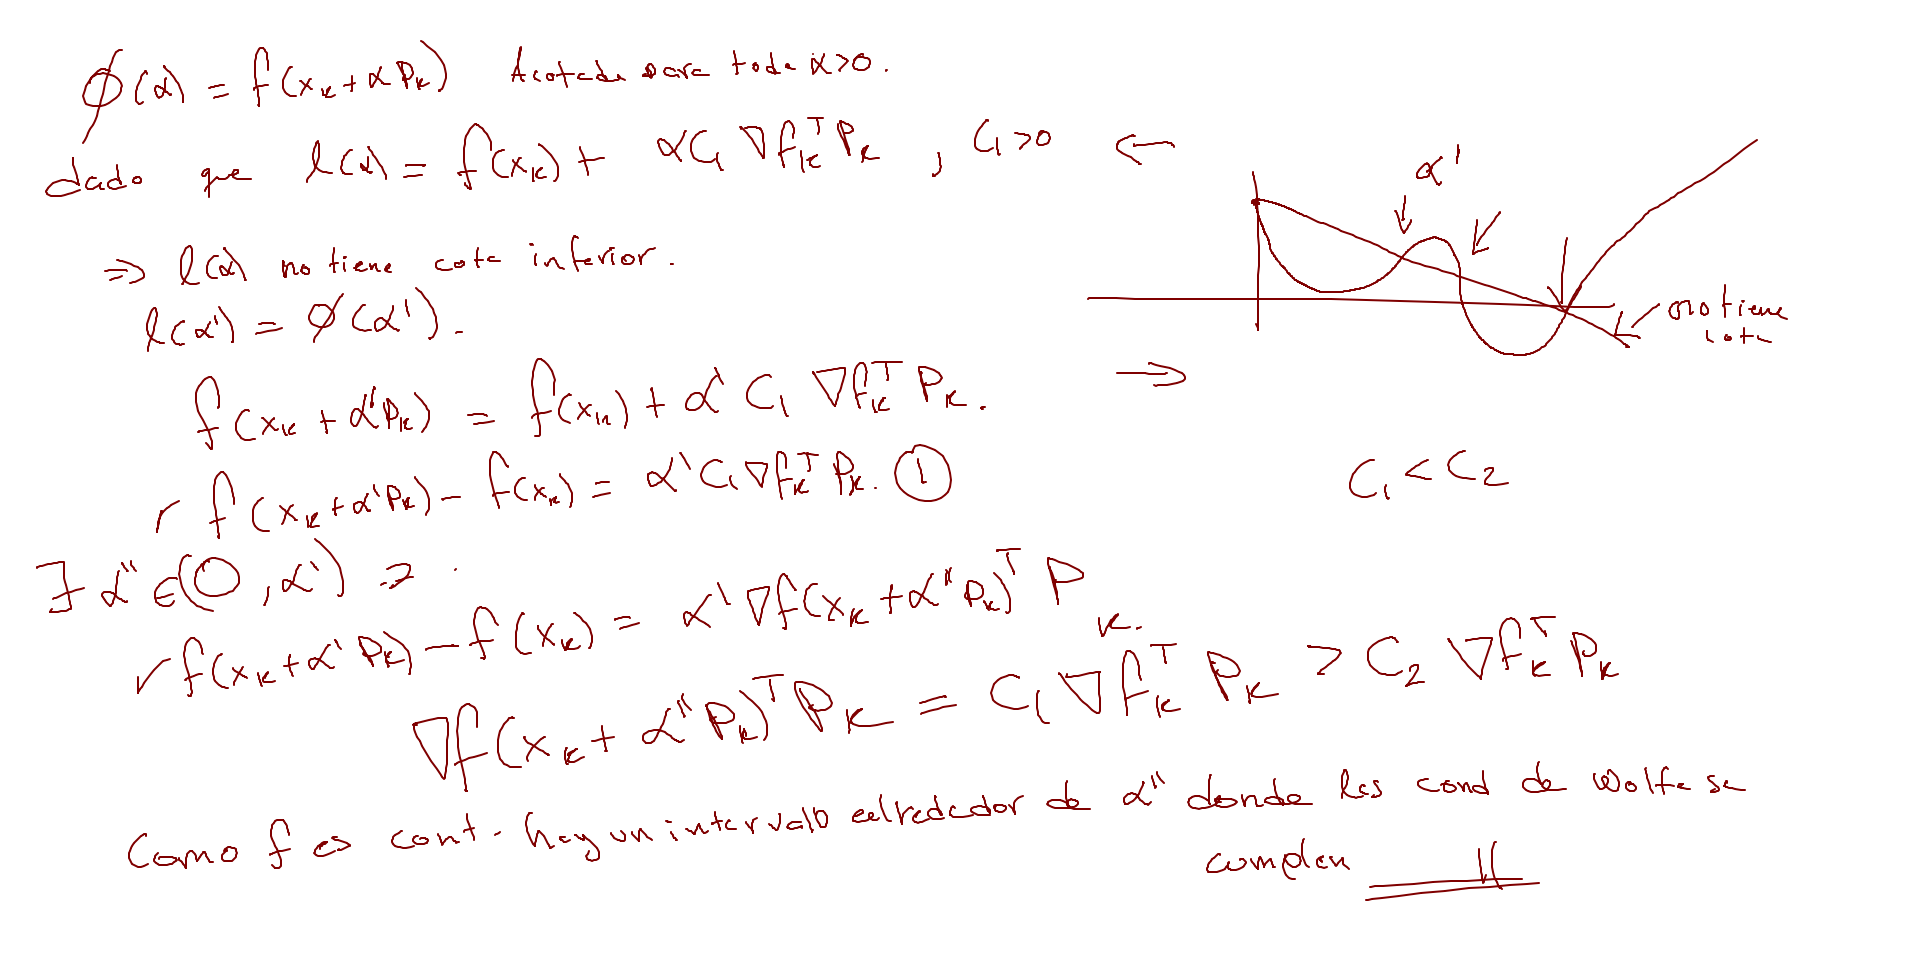 φ(α) = f(x_k + α p_k) Acotada para todo α>0.
dado que l(α) = f(x_k) + α C₁ ∇f_k^T p_k , C₁>0 ←
⇒ l(α) no tiene cota inferior.
l(α') = φ(α').
f(x_k + α' p_k) = f(x_k) + α' C₁ ∇f_k^T p_k. ⇒
f(x_k + α' p_k) − f(x_k) = α' C₁ ∇f_k^T p_k. ①
∃ α'' ∈ (0, α')
f(x_k + α' p_k) − f(x_k) = α' ∇f(x_k + α'' p_k)^T p_k.
∇f(x_k + α'' p_k)^T p_k = C₁ ∇f_k^T p_k > C₂ ∇f_k^T p_k
Como f es cont. hay un intervalo alrededor de α'' donde las cond de Wolfe se
cumplen
α'
no tiene
cota
C₁ < C₂